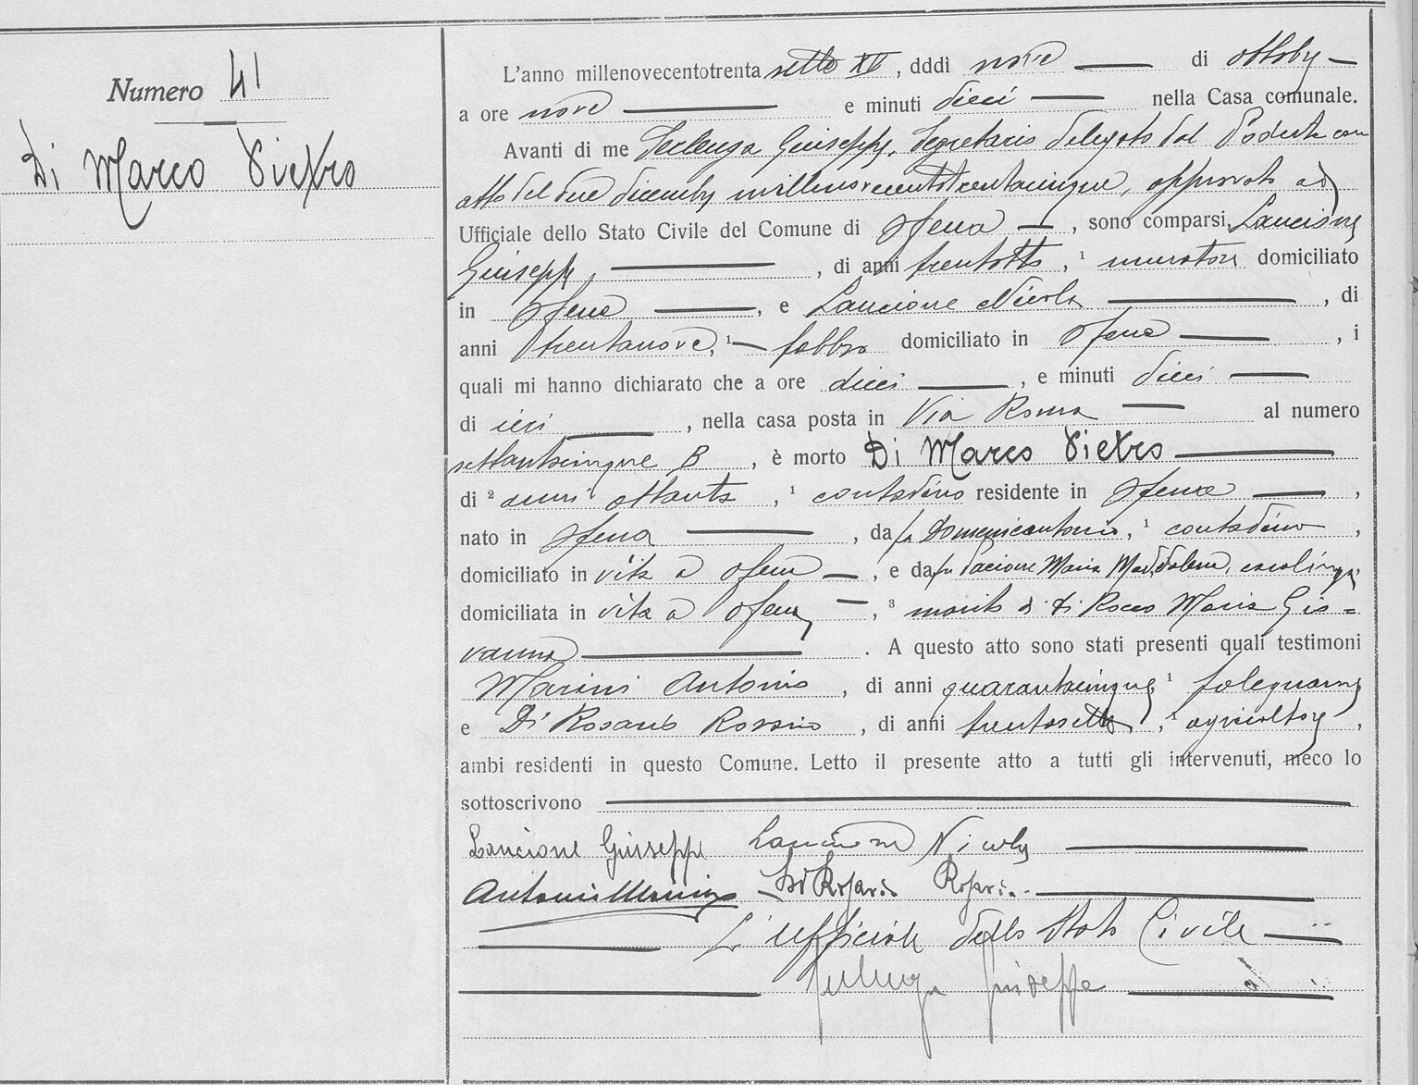 Numero 41
Di Marco Pietro
L'anno millenovecentotrenta sette XV, addì nove di ottobre
a ore nove e minuti dieci nella Casa comunale.
Avanti di me Giuseppe, Segretario delegato dal Podestà con
atto del due dicembre millenovecentotrentacinque, approvato ad
Ufficiale dello Stato Civile del Comune di Ofena, sono comparsi, Lancione
Giuseppe, di anni trentotto, ¹ muratore domiciliato
in Ofena, e Lancione Nicola, di
anni trentanove, ¹ fabbro domiciliato in Ofena, i
quali mi hanno dichiarato che a ore dieci, e minuti dieci
di ieri, nella casa posta in Via Roma al numero
settantacinque B, è morto Di Marco Pietro
di ² anni ottanta, ¹ contadino residente in Ofena,
nato in Ofena, da fu Domenicantonio, ¹ contadino,
domiciliato in vita a Ofena, e da fu Maria Maddalena, casalinga,
domiciliata in vita a Ofena, ³ marito di Di Rocco Maria Gio=
vanna. A questo atto sono stati presenti quali testimoni
Marini Antonio, di anni quarantacinque, ¹ falegname
e Di Rosario Rosario, di anni trentasette, ¹ agricoltore,
ambi residenti in questo Comune. Letto il presente atto a tutti gli intervenuti, meco lo
sottoscrivono
Lancione Giuseppe Lancione Nicola
Antonio Marini Di Rosario Rosario
L'ufficiale dello Stato Civile
Giuseppe